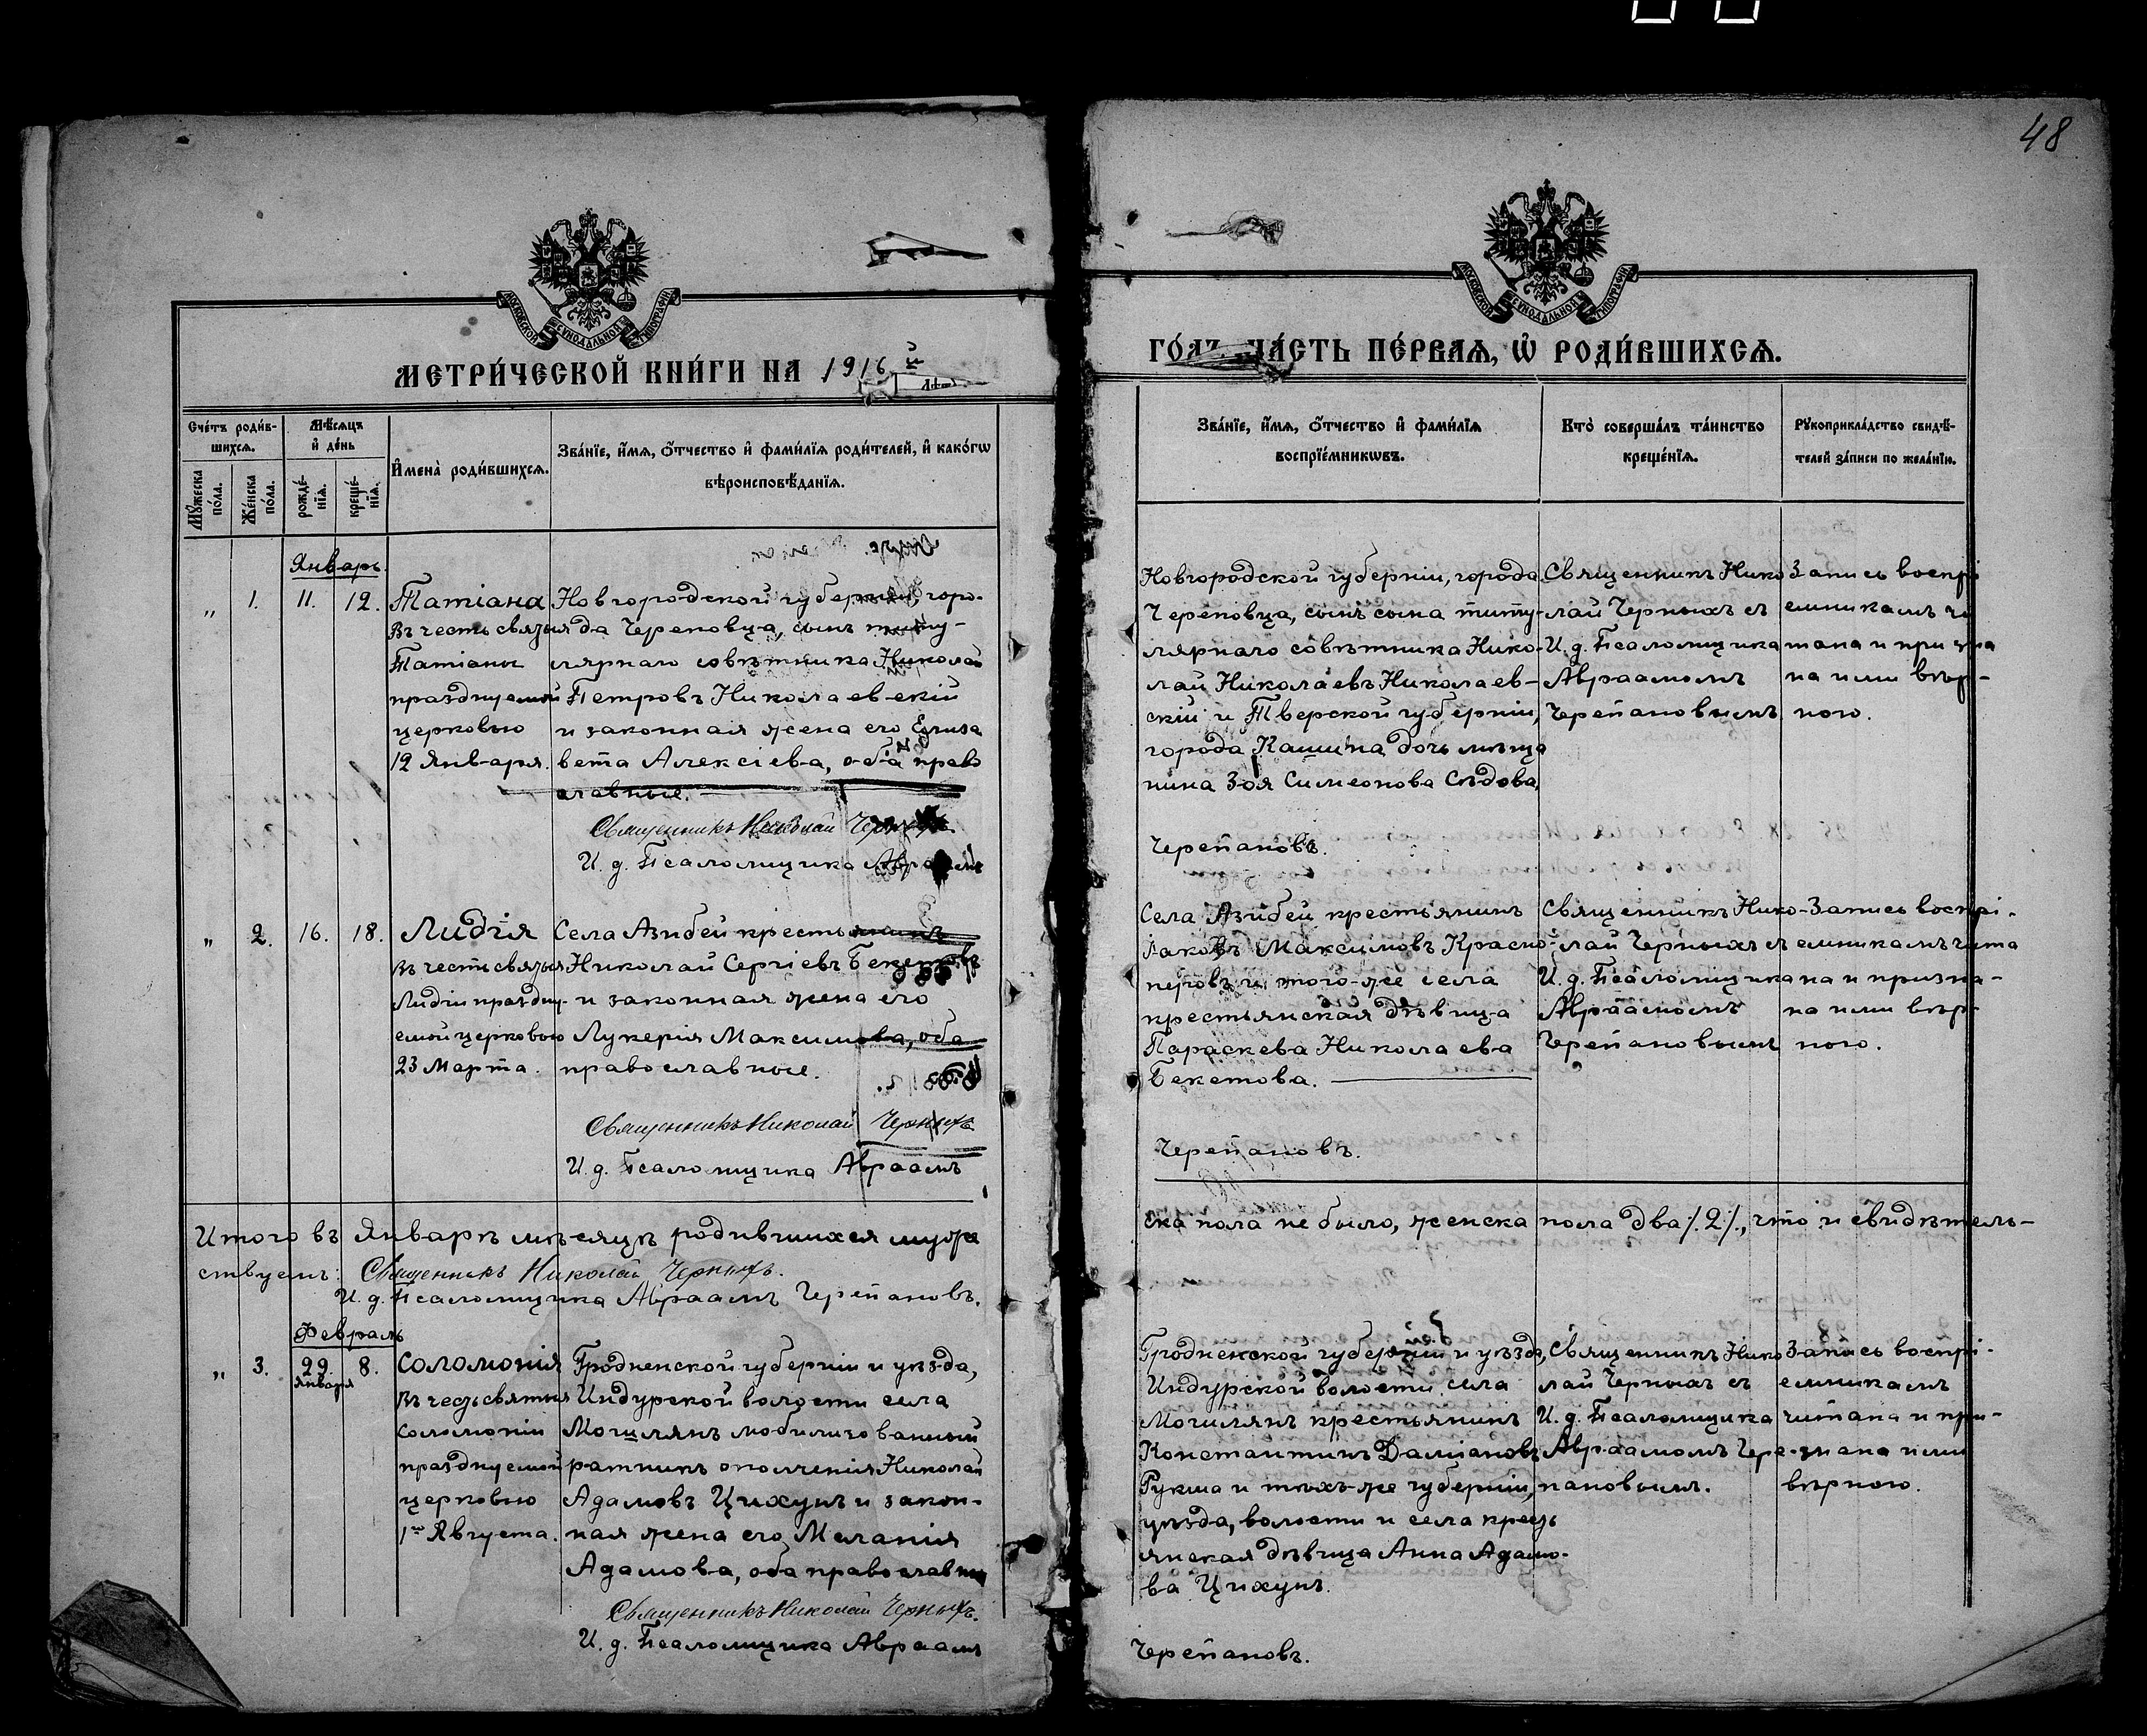 48
МОСКОВСКОЙ СѴНОДАЛЬНОЙ ТИПОГРАФІИ
МОСКОВСКОЙ СѴНОДАЛЬНОЙ ТИПОГРАФІИ
МЕТРИ́ЧЕСКОЙ КНИ́ГИ НА 1916 й
ГО́ДЪ ЧА́СТЬ ПЕ́РВАЯ, Ѡ РОДИ́ВШИХСЯ.
Сче́тъ роди́в-
шихся.
Мѣ́сяцъ
и де́нь
Мꙋ́жеска
по́ла.
Же́нска
по́ла.
рожде́-
нїя.
креще́-
нїя.
И́мена̀ роди́вшихся.
Зва́нїе, и́мя, о́тчество и фами́лїя роди́телей, и како́гѡ
вѣроисповѣ́данїя.
Зва́нїе, и́мя, о́тчество и фами́лїя
воспрїе́мникѡвъ.
Кто̀ соверша́лъ та́инство
креще́нїя.
Рꙋкоприкла́дство свидѣ́-
телей за́писи по жела́нїю.
Январь.
„ 1. 11. 12.
Татіана
Въ честь святыя
Татіаны
празднуемой
церковью
12 Января.
Новгородской губерніи, горо-
да Череповца, сынъ титу-
лярнаго совѣтника Николай
Петровъ Николаевскій
и законная жена его Елиза
вета Алексіева, оба право
славные.
Священникъ Николай Черныхъ
И. д. Псаломщика Авраамъ
Новгородской губерніи, города
Череповца, сынъ сына титу-
лярнаго совѣтника Нико-
лай Николаевъ Николаев-
скій и Тверской губерніи,
города Кашина дочь мѣща
нина Зоя Симеонова Сѣдова,
Черепановъ.
Священникъ Нико
лай Черныхъ съ
И. д. Псаломщика
Авраамомъ
Черепановымъ
Запись воспрі
емникамъ чи
тана и призна
на ими вѣр-
ною.
„ 2. 16. 18.
Лидія
въ честь святыя
Лидіи праздну-
емой церковью
23 Марта.
Села Азибей крестьянинъ
Николай Сергіевъ Бекетовъ
и законная жена его
Лукерія Максимова, оба
православные.
Священникъ Николай Черныхъ
И. д. Псаломщика Авраамъ
Села Азибей крестьянинъ
Іаковъ Максимовъ Красно-
перовъ и того-же села
крестьянская дѣвица
Параскева Николаева
Бекетова.
Черепановъ.
Священникъ Нико-
лай Черныхъ съ
И. д. Псаломщика
Авраамомъ
Черепановымъ
Запись воспрі-
емникамъ чита
на и призна-
на ими вѣр-
ною.
Итого въ Январѣ мѣсяцѣ родившихся муже
ска пола не было, женска пола два /. 2 /., что и свидѣтель-
ствуемъ: Священникъ Николай Черныхъ.
И. д. Псаломщика Авраамъ Черепановъ.
Февраль
„ 3. 29. 8.
января
Соломонія
Въ честь святыя
Соломоніи
празднуемой
церковью
1го Августа.
Гродненской губерніи и уѣзда,
Индурской волости села
Могилянъ мобилизованный
ратникъ ополченія Николай
Адамовъ Цихунъ и закон-
ная жена его Меланія
Адамова, оба православны
Священникъ Николай Черныхъ.
И. д. Псаломщика Авраамъ
Гродненской губерніи и уѣзда,
Индурской волости села
Могилянъ крестьянинъ
Константинъ Даміановъ
Рукша и тѣхъ-же губерніи,
уѣзда, волости и села кресть
янская дѣвица Анна Адамо-
ва Цихунъ.
Черепановъ.
Священникъ Нико
лай Черныхъ съ
И. д. Псаломщика
Авраамомъ Чере-
пановымъ.
Запись воспрі-
емникамъ
читана и при-
знана ими
вѣрною.